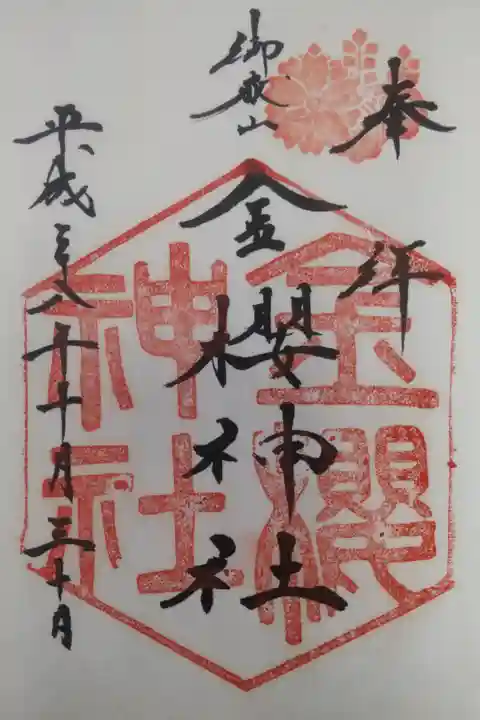 奉拝
御嶽山
金櫻神社
平成二十八年十月三十日
金櫻
神社